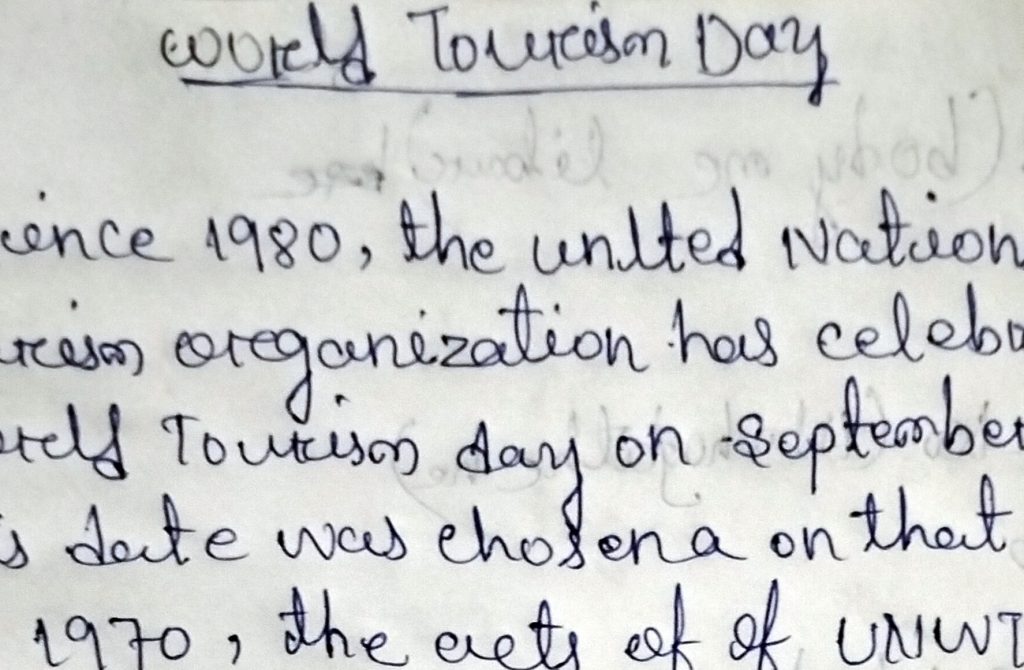 World Tourism Day
ience 1980, the united Nation
rism organization has celeb
orld Tourism day on September
s date was chosen a on that
1970, the acts of of UNWT